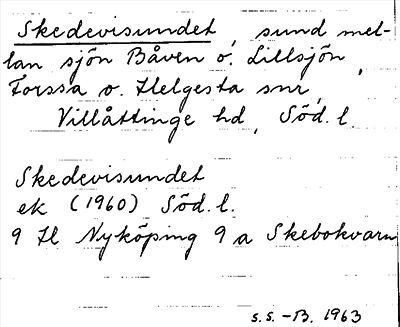 Skedevisundet, sund mel-
lan sjön Båven o. Lillsjön,
Forssa o. Helgesta snr,
Villåttinge hd, Söd. l.
Skedevisundet
ek (1960) Söd. l.
9 H Nyköping 9 a Skebokvarn
S.S. -B. 1963